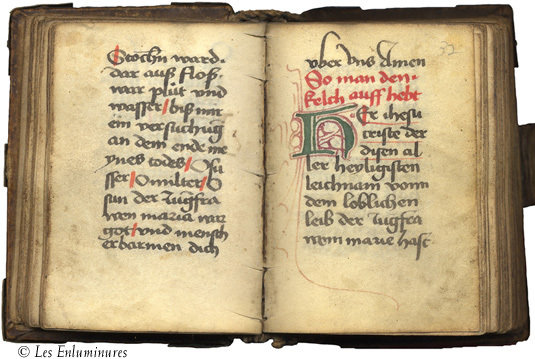 Stochn ward.
dar auß floß
war plut vnd
wasser / biß mir
ein versuchūg
an dem ende me
ynes todes / O su
sser / O milter / O
sun der Jūgfra
wen maria war
got / vnd mensch
erbarmen dich
vber vns Amen
32
So man den
kelch auff hebt
HEr ihesu
criste der
disen al
ler heyligisten
leichnam vonn
dem loblichen
leib der Jūgfra
wem marie hast
© Les Enluminures